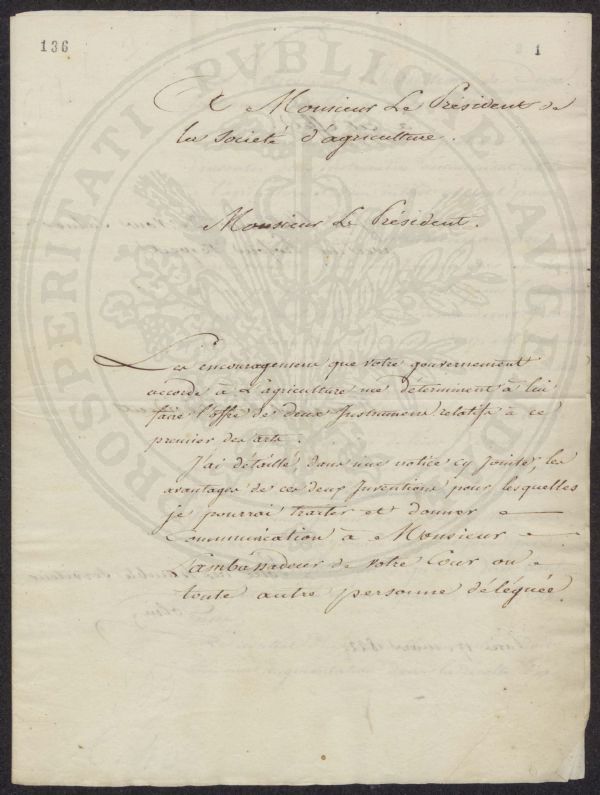 136
1
A Monsieur Le Président de
la Societé d'agriculture.
Monsieur Le Président.
Les encouragemens que votre gouvernement
accorde à L'agriculture me déterminent à lui
faire l'offre de deux Instrumens relatifs à ce
premier des arts.
J'ai détaillé, dans une notice cy Jointe, les
avantages de ces deux Inventions pour lesquelles
je pourrai traiter et donner
Communication à Monsieur
L'ambassadeur de votre Cour ou
toute autre personne déléguée
PROSPERITATI PVBLICAE AVGENDAE